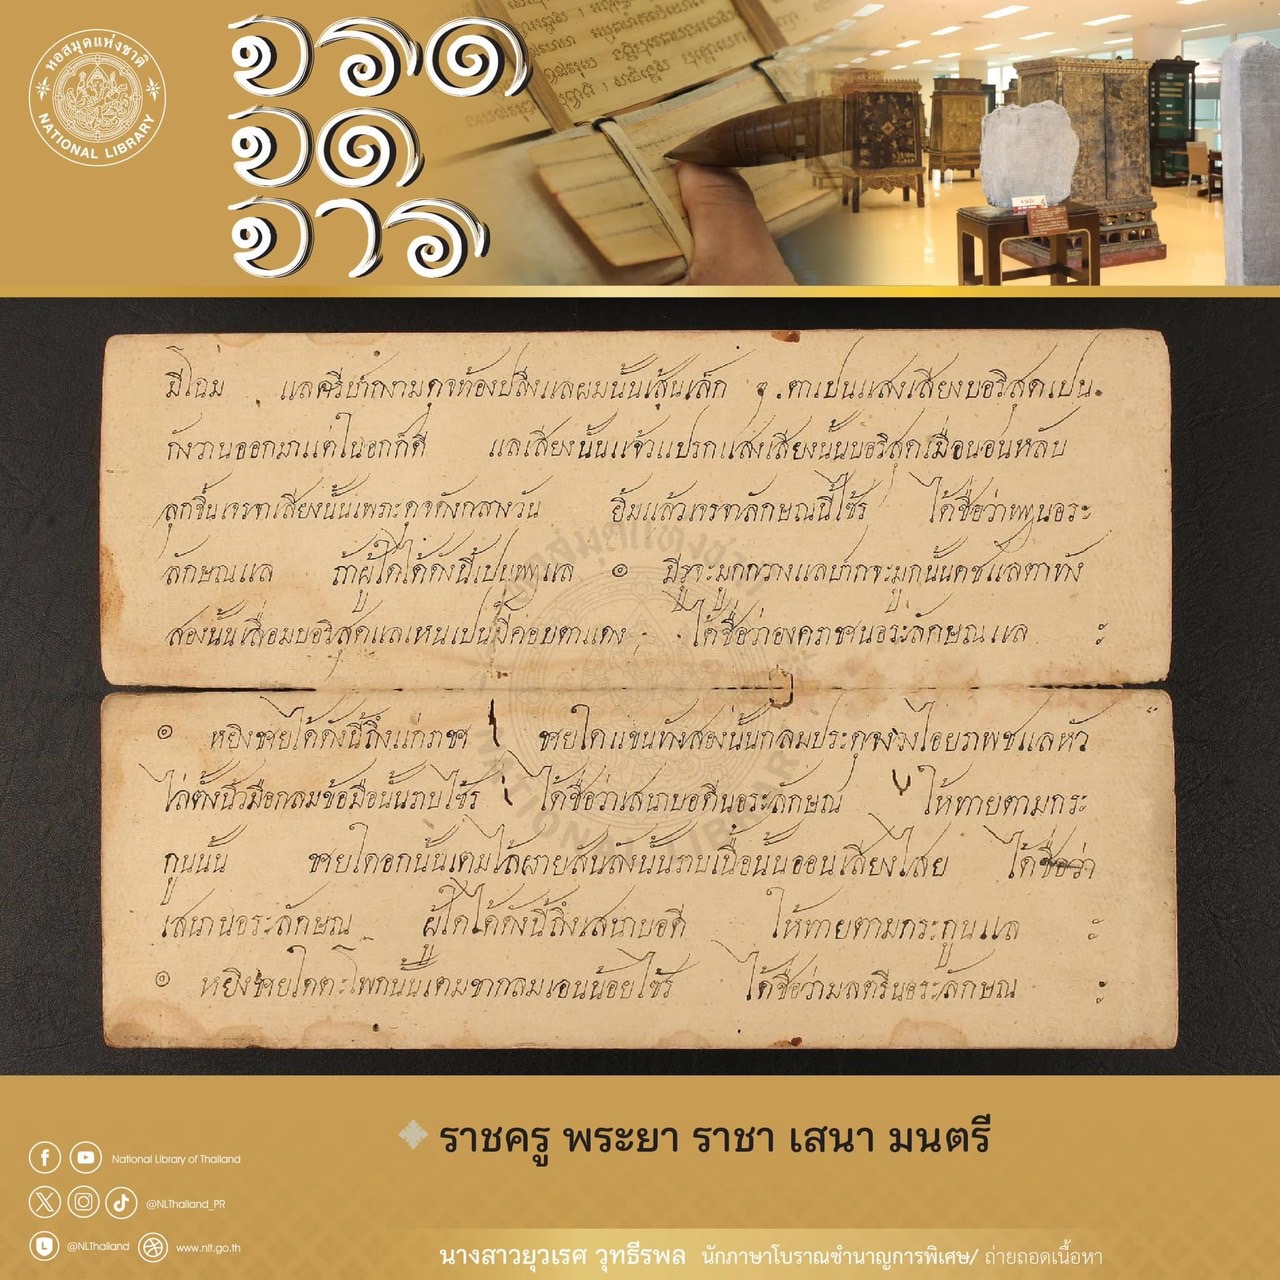 หอสมุดแห่งชาติ
NATIONAL LIBRARY
จาร
มีโฉม แลศรีปากงามดุจท้องปลิงแลผมนั้นเส้นเล็ก ๆ
กังวานออกมาแต่ในอกก็ดี แลเสียงนั้นแจ้วแปรกแสงเสียงนั้นบอริสุดเมื่อนอนหลับ
ลุกขึ้นเจรจาเสียงนั้นเพราะดุจดังกลางวัน ยิ้มแล้วเจรจาลักษณนี้ไซ้ร ได้ชื่อว่า
ลักษณแล ถ้าผู้ใดได้ดังนี้เปน ๏ มีรูจะมูกกวางแลปากจะมูกนั้นคชแลตาทัง
สองนั้นเลื่อมบอริสุดแลเหนเปนมี่คอบตาแดง ได้ชื่อว่าองคราชนอระลักษณแล ะ
๏ หยิงชายได้ดังนี้ถึงแก่ราช ชายใดแขนทังสองนั้นกลมประดุจงวงไอยราพชแลหัว
ไล่ตั้งนิ้วมือกลมข้อมือนั้นราบไซ้ร ได้ชื่อว่าเสนาบอดีนอระลักษณ ให้ทายตามกระ
กูนนั้น ชายใดอกนั้นเตมไล้ผายสันลังนั้นราบเนื้อนั้นออนเสียงไสย ได้ชื่อว่า
เสนานอระลักษณ ผู้ใดได้ดังนี้ถึงเสนาบอดี ให้ทายตามกระกูนแล ะ
๏ หยิงชายใดตะโพกนั้นเตมขากลมเอนน้อยไซ้ร ได้ชื่อว่ามลตรีนอระลักษณ ะ
ราชครู พระยา ราชา เสนา มนตรี
National Library of Thailand
@NLThailand_PR
@NLThailand www.nlt.go.th
นางสาวยุวเรศ วุทธีรพล นักภาษาโบราณชำนาญการพิเศษ/ ถ่ายถอดเนื้อหา